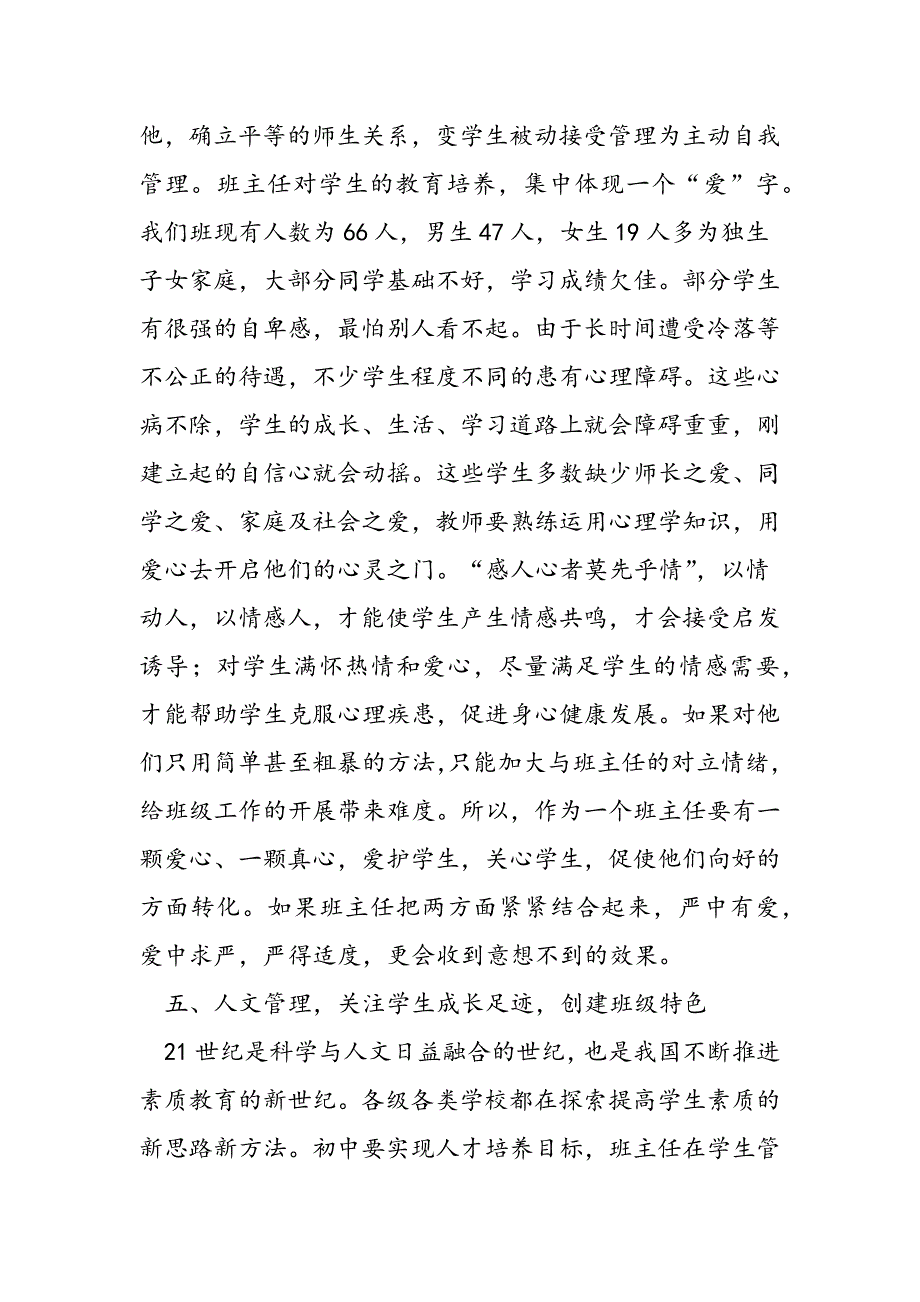 他，确立平等的师生关系，变学生被动接受管理为主动自我
管理。班主任对学生的教育培养，集中体现一个“爱”字。
我们班现有人数为66人，男生47人，女生19人多为独生
子女家庭，大部分同学基础不好，学习成绩欠佳。部分学生
有很强的自卑感，最怕别人看不起。由于长时间遭受冷落等
不公正的待遇，不少学生程度不同的患有心理障碍。这些心
病不除，学生的成长、生活、学习道路上就会障碍重重，刚
建立起的自信心就会动摇。这些学生多数缺少师长之爱、同
学之爱、家庭及社会之爱，教师要熟练运用心理学知识，用
爱心去开启他们的心灵之门。“感人心者莫先乎情”，以情
动人，以情感人，才能使学生产生情感共鸣，才会接受启发
诱导；对学生满怀热情和爱心，尽量满足学生的情感需要，
才能帮助学生克服心理疾患，促进身心健康发展。如果对他
们只用简单甚至粗暴的方法，只能加大与班主任的对立情绪，
给班级工作的开展带来难度。所以，作为一个班主任要有一
颗爱心、一颗真心，爱护学生，关心学生，促使他们向好的
方面转化。如果班主任把两方面紧紧结合起来，严中有爱，
爱中求严，严得适度，更会收到意想不到的效果。
五、人文管理，关注学生成长足迹，创建班级特色
21世纪是科学与人文日益融合的世纪，也是我国不断推进
素质教育的新世纪。各级各类学校都在探索提高学生素质的
新思路新方法。初中要实现人才培养目标，班主任在学生管